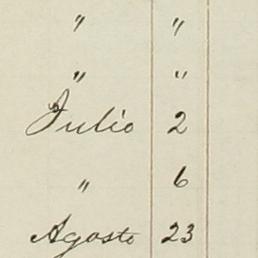 " "
" "
Julio 2
" 6
Agosto 23